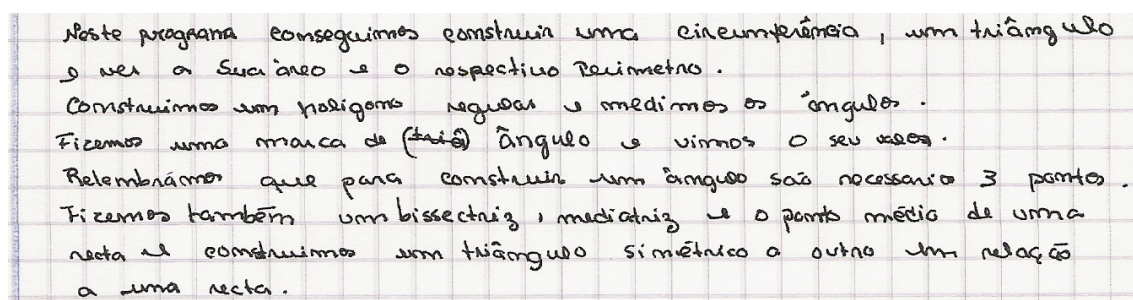 Neste programa conseguimos construir uma circunferência, um triângulo
e ver a sua área e o respectivo Perimetro.
Construimos um poligono regular e medimos os ângulos.
Fizemos uma marca de (triâ) ângulo e vimos o seu valor.
Relembrámos que para construir um ângulo são necessario 3 pontos.
Fizemos também um bissectriz, mediatriz e o ponto médio de uma
recta e construimos um triângulo simétrico a outro em relação
a uma recta.